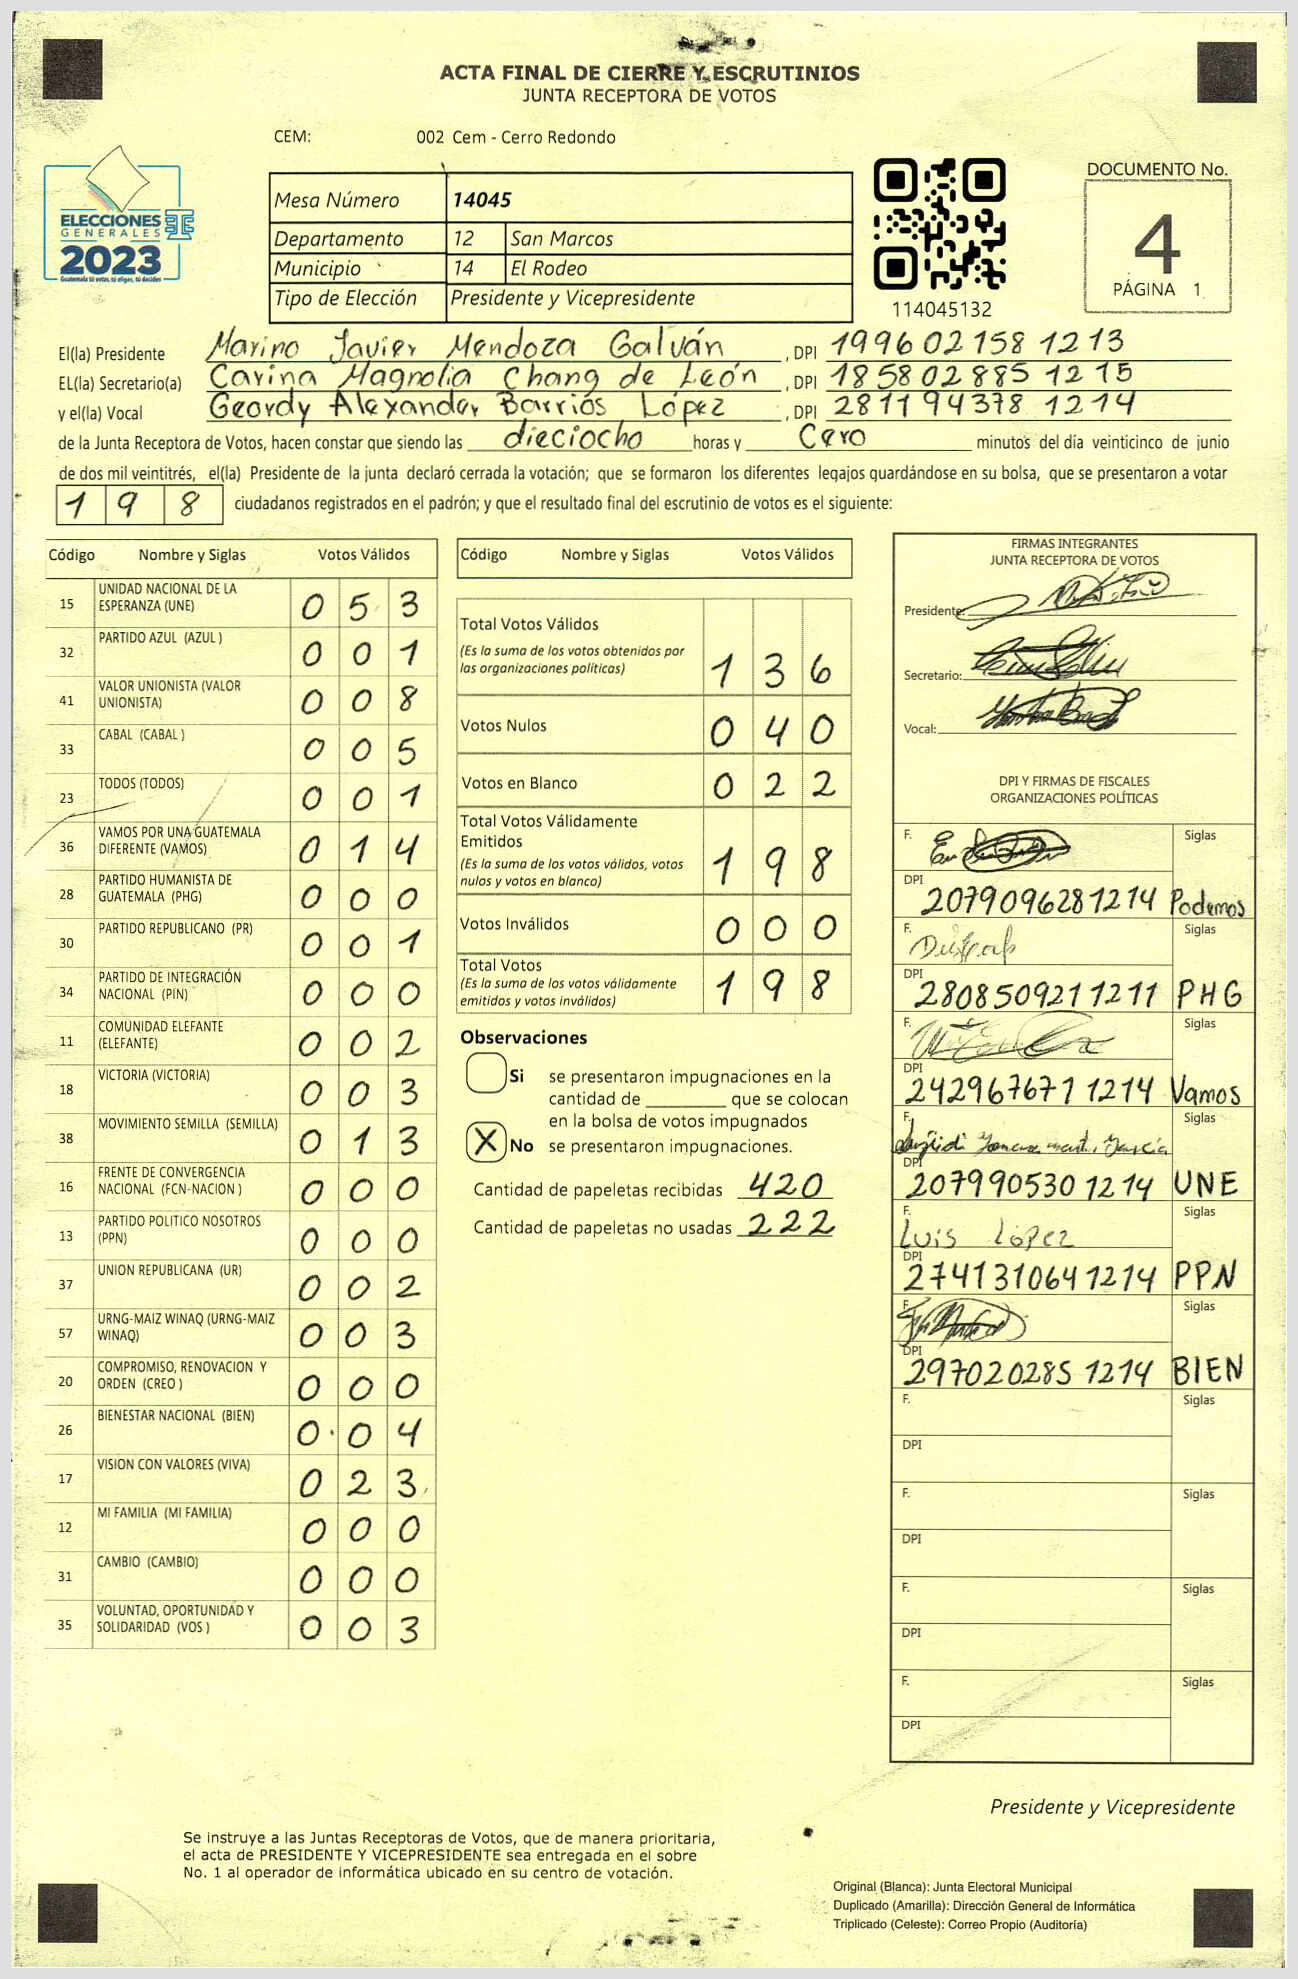 ACTA FINAL DE CIERRE Y ESCRUTINIOS
JUNTA RECEPTORA DE VOTOS
CEM: 002 Cem - Cerro Redondo
ELECCIONES
GENERALES
2023
Guatemala tú votas, tú eliges, tú decides
Mesa Número 14045
Departamento 12 San Marcos
Municipio 14 El Rodeo
Tipo de Elección Presidente y Vicepresidente
114045132
DOCUMENTO No.
4
PÁGINA 1
El(la) Presidente Marino Javier Mendoza Galván , DPI 199602158 1213
EL(la) Secretario(a) Carina Magnolia Chang de León , DPI 185802885 1215
y el(la) Vocal Geordy Alexander Barrios López , DPI 281194378 1214
de la Junta Receptora de Votos, hacen constar que siendo las dieciocho horas y Cero minutos del día veinticinco de junio
de dos mil veintitrés, el(la) Presidente de la junta declaró cerrada la votación; que se formaron los diferentes legajos guardándose en su bolsa, que se presentaron a votar
198 ciudadanos registrados en el padrón; y que el resultado final del escrutinio de votos es el siguiente:
Código Nombre y Siglas Votos Válidos
15 UNIDAD NACIONAL DE LA ESPERANZA (UNE) 0 5 3
32 PARTIDO AZUL (AZUL ) 0 0 1
41 VALOR UNIONISTA (VALOR UNIONISTA) 0 0 8
33 CABAL (CABAL ) 0 0 5
23 TODOS (TODOS) 0 0 1
36 VAMOS POR UNA GUATEMALA DIFERENTE (VAMOS) 0 1 4
28 PARTIDO HUMANISTA DE GUATEMALA (PHG) 0 0 0
30 PARTIDO REPUBLICANO (PR) 0 0 1
34 PARTIDO DE INTEGRACIÓN NACIONAL (PIN) 0 0 0
11 COMUNIDAD ELEFANTE (ELEFANTE) 0 0 2
18 VICTORIA (VICTORIA) 0 0 3
38 MOVIMIENTO SEMILLA (SEMILLA) 0 1 3
16 FRENTE DE CONVERGENCIA NACIONAL (FCN-NACION ) 0 0 0
13 PARTIDO POLITICO NOSOTROS (PPN) 0 0 0
37 UNION REPUBLICANA (UR) 0 0 2
57 URNG-MAIZ WINAQ (URNG-MAIZ WINAQ) 0 0 3
20 COMPROMISO, RENOVACION Y ORDEN (CREO ) 0 0 0
26 BIENESTAR NACIONAL (BIEN) 0 0 4
17 VISION CON VALORES (VIVA) 0 2 3
12 MI FAMILIA (MI FAMILIA) 0 0 0
31 CAMBIO (CAMBIO) 0 0 0
35 VOLUNTAD, OPORTUNIDAD Y SOLIDARIDAD (VOS ) 0 0 3
Código Nombre y Siglas Votos Válidos
Total Votos Válidos
(Es la suma de los votos obtenidos por
las organizaciones políticas) 1 3 6
Votos Nulos 0 4 0
Votos en Blanco 0 2 2
Total Votos Válidamente
Emitidos
(Es la suma de los votos válidos, votos
nulos y votos en blanco) 1 9 8
Votos Inválidos 0 0 0
Total Votos
(Es la suma de los votos válidamente
emitidos y votos inválidos) 1 9 8
Observaciones
Si se presentaron impugnaciones en la
cantidad de ________ que se colocan
en la bolsa de votos impugnados
X No se presentaron impugnaciones.
Cantidad de papeletas recibidas 420
Cantidad de papeletas no usadas 222
FIRMAS INTEGRANTES
JUNTA RECEPTORA DE VOTOS
Presidente:
Secretario:
Vocal:
DPI Y FIRMAS DE FISCALES
ORGANIZACIONES POLÍTICAS
F. Siglas
DPI 207909628 1214 Podemos
F. Siglas
DPI 280850921 1211 PHG
F. Siglas
DPI 242967671 1214 Vamos
F. Siglas
DPI 207990530 1214 UNE
F. Luis López Siglas
DPI 274131064 1214 PPN
F. Siglas
DPI 297020285 1214 BIEN
F. Siglas
DPI
F. Siglas
DPI
F. Siglas
DPI
F. Siglas
DPI
Presidente y Vicepresidente
Se instruye a las Juntas Receptoras de Votos, que de manera prioritaria,
el acta de PRESIDENTE Y VICEPRESIDENTE sea entregada en el sobre
No. 1 al operador de informática ubicado en su centro de votación.
Original (Blanca): Junta Electoral Municipal
Duplicado (Amarilla): Dirección General de Informática
Triplicado (Celeste): Correo Propio (Auditoría)